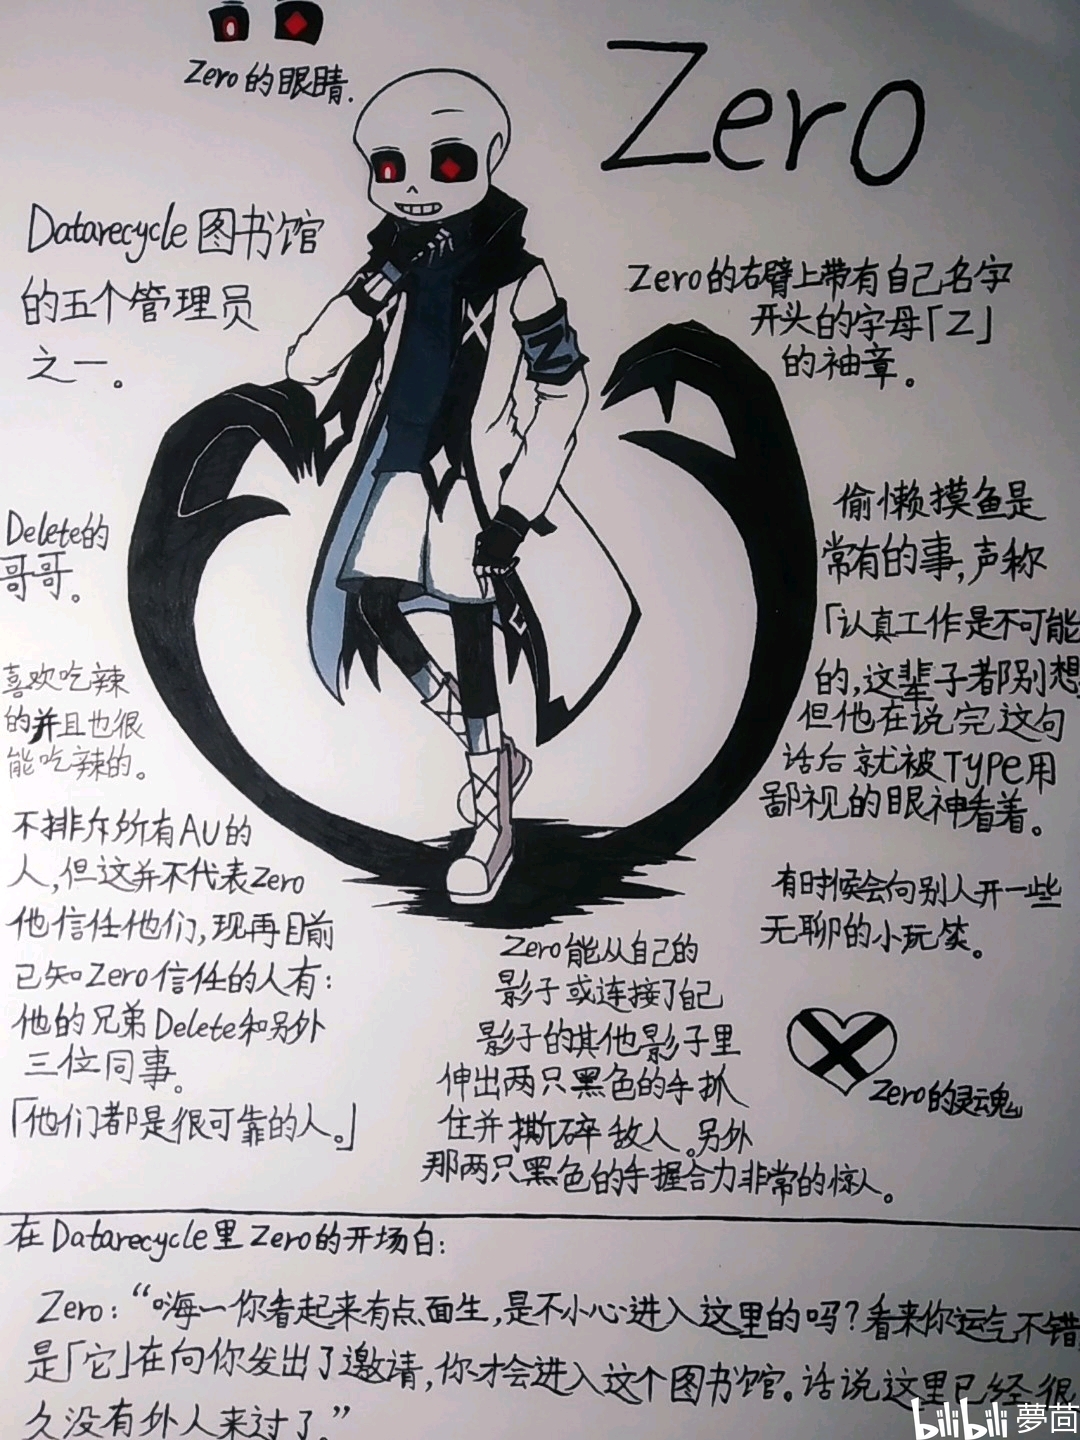 Zero的眼睛.
Zero
Datarecycle图书馆
的五个管理员
之一。
Zero的右臂上带有自己名字
开头的字母「Z」
的袖章。
Z
Delete的
哥哥。
喜欢吃辣
的并且也很
能吃辣的。
不排斥所有AU的
人,但这并不代表Zero
他信任他们,现再目前
已知Zero信任的人有:
他的兄弟Delete和另外
三位同事。
「他们都是很可靠的人。」
偷懒摸鱼是
常有的事,声称
「认真工作是不可能
的,这辈子都别想
但他在说完这句
话后就被TYPE用
鄙视的眼神看着。
有时候会向别人开一些
无聊的小玩笑。
Zero能从自己的
影子或连接了自己
影子的其他影子里
伸出两只黑色的手抓
住并撕碎敌人。另外
那两只黑色的手握合力非常的惊人。
Zero的灵魂
在Datarecycle里Zero的开场白:
Zero:“嗨一你看起来有点面生,是不小心进入这里的吗?看来你运气不错
是「它」在向你发出了邀请,你才会进入这个图书馆。话说这里已经很
久没有外人来过了。”
bilibili 夢茴